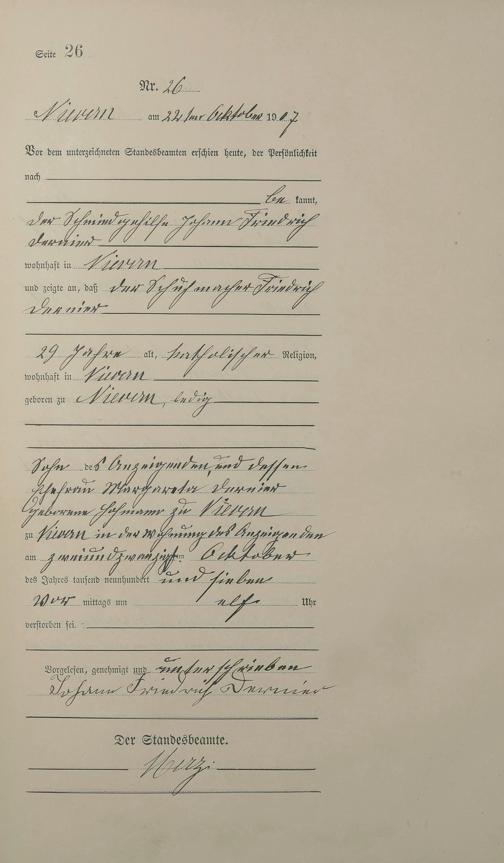 Seite 26
Nr. 26
Nievern am 22ten Oktober 1907
Vor dem unterzeichneten Standesbeamten erschien heute, der Persönlichkeit
nach
be kannt,
der Schmiedgehilfe Johann Friedrich
Dernier
wohnhaft in Nievern
und zeigte an, daß der Schuhmacher Friedrich
Dernier
29 Jahre alt, katholischer Religion,
wohnhaft in Nievern
geboren zu Nievern, ledig
Sohn des Anzeigenden, und dessen
Ehefrau Margareta Dernier
geborene Hofmann zu Nievern
zu Nievern in der Wohnung des Anzeigenden
am zweiundzwanzigsten Oktober
des Jahres tausend neunhundert und sieben
Vor mittags um elf Uhr
verstorben sei.
Vorgelesen, genehmigt und unterschrieben
Johann Friedrich Dernier
Der Standesbeamte.